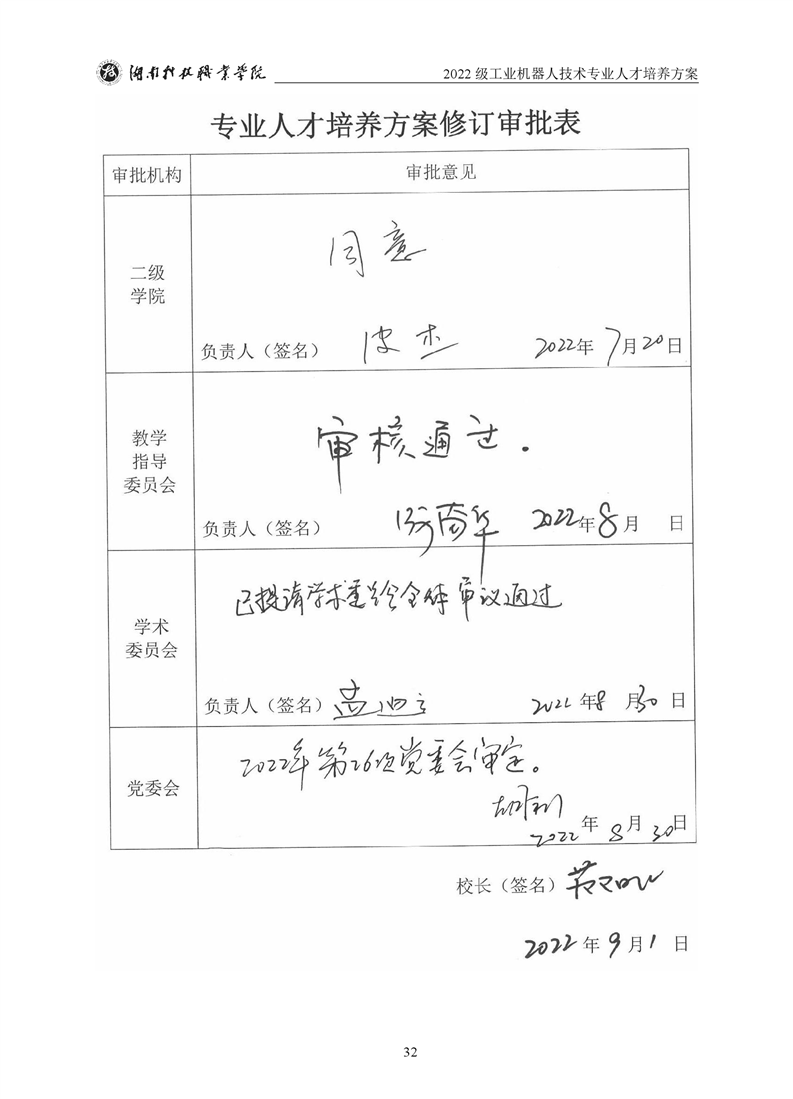 湖南科技职业学院
2022 级工业机器人技术专业人才培养方案
专业人才培养方案修订审批表
审批机构 审批意见
同意
二级
学院
负责人（签名） 皮杰 2022年 7月20日
审核通过.
教学
指导
委员会
负责人（签名） 2022年8月 日
已提请学术委员会全体审议通过
学术
委员会
负责人（签名） 2022年8月30日
2022年第26次党委会审定。
党委会
2022年8月30日
校长（签名）
2022年9月1日
32